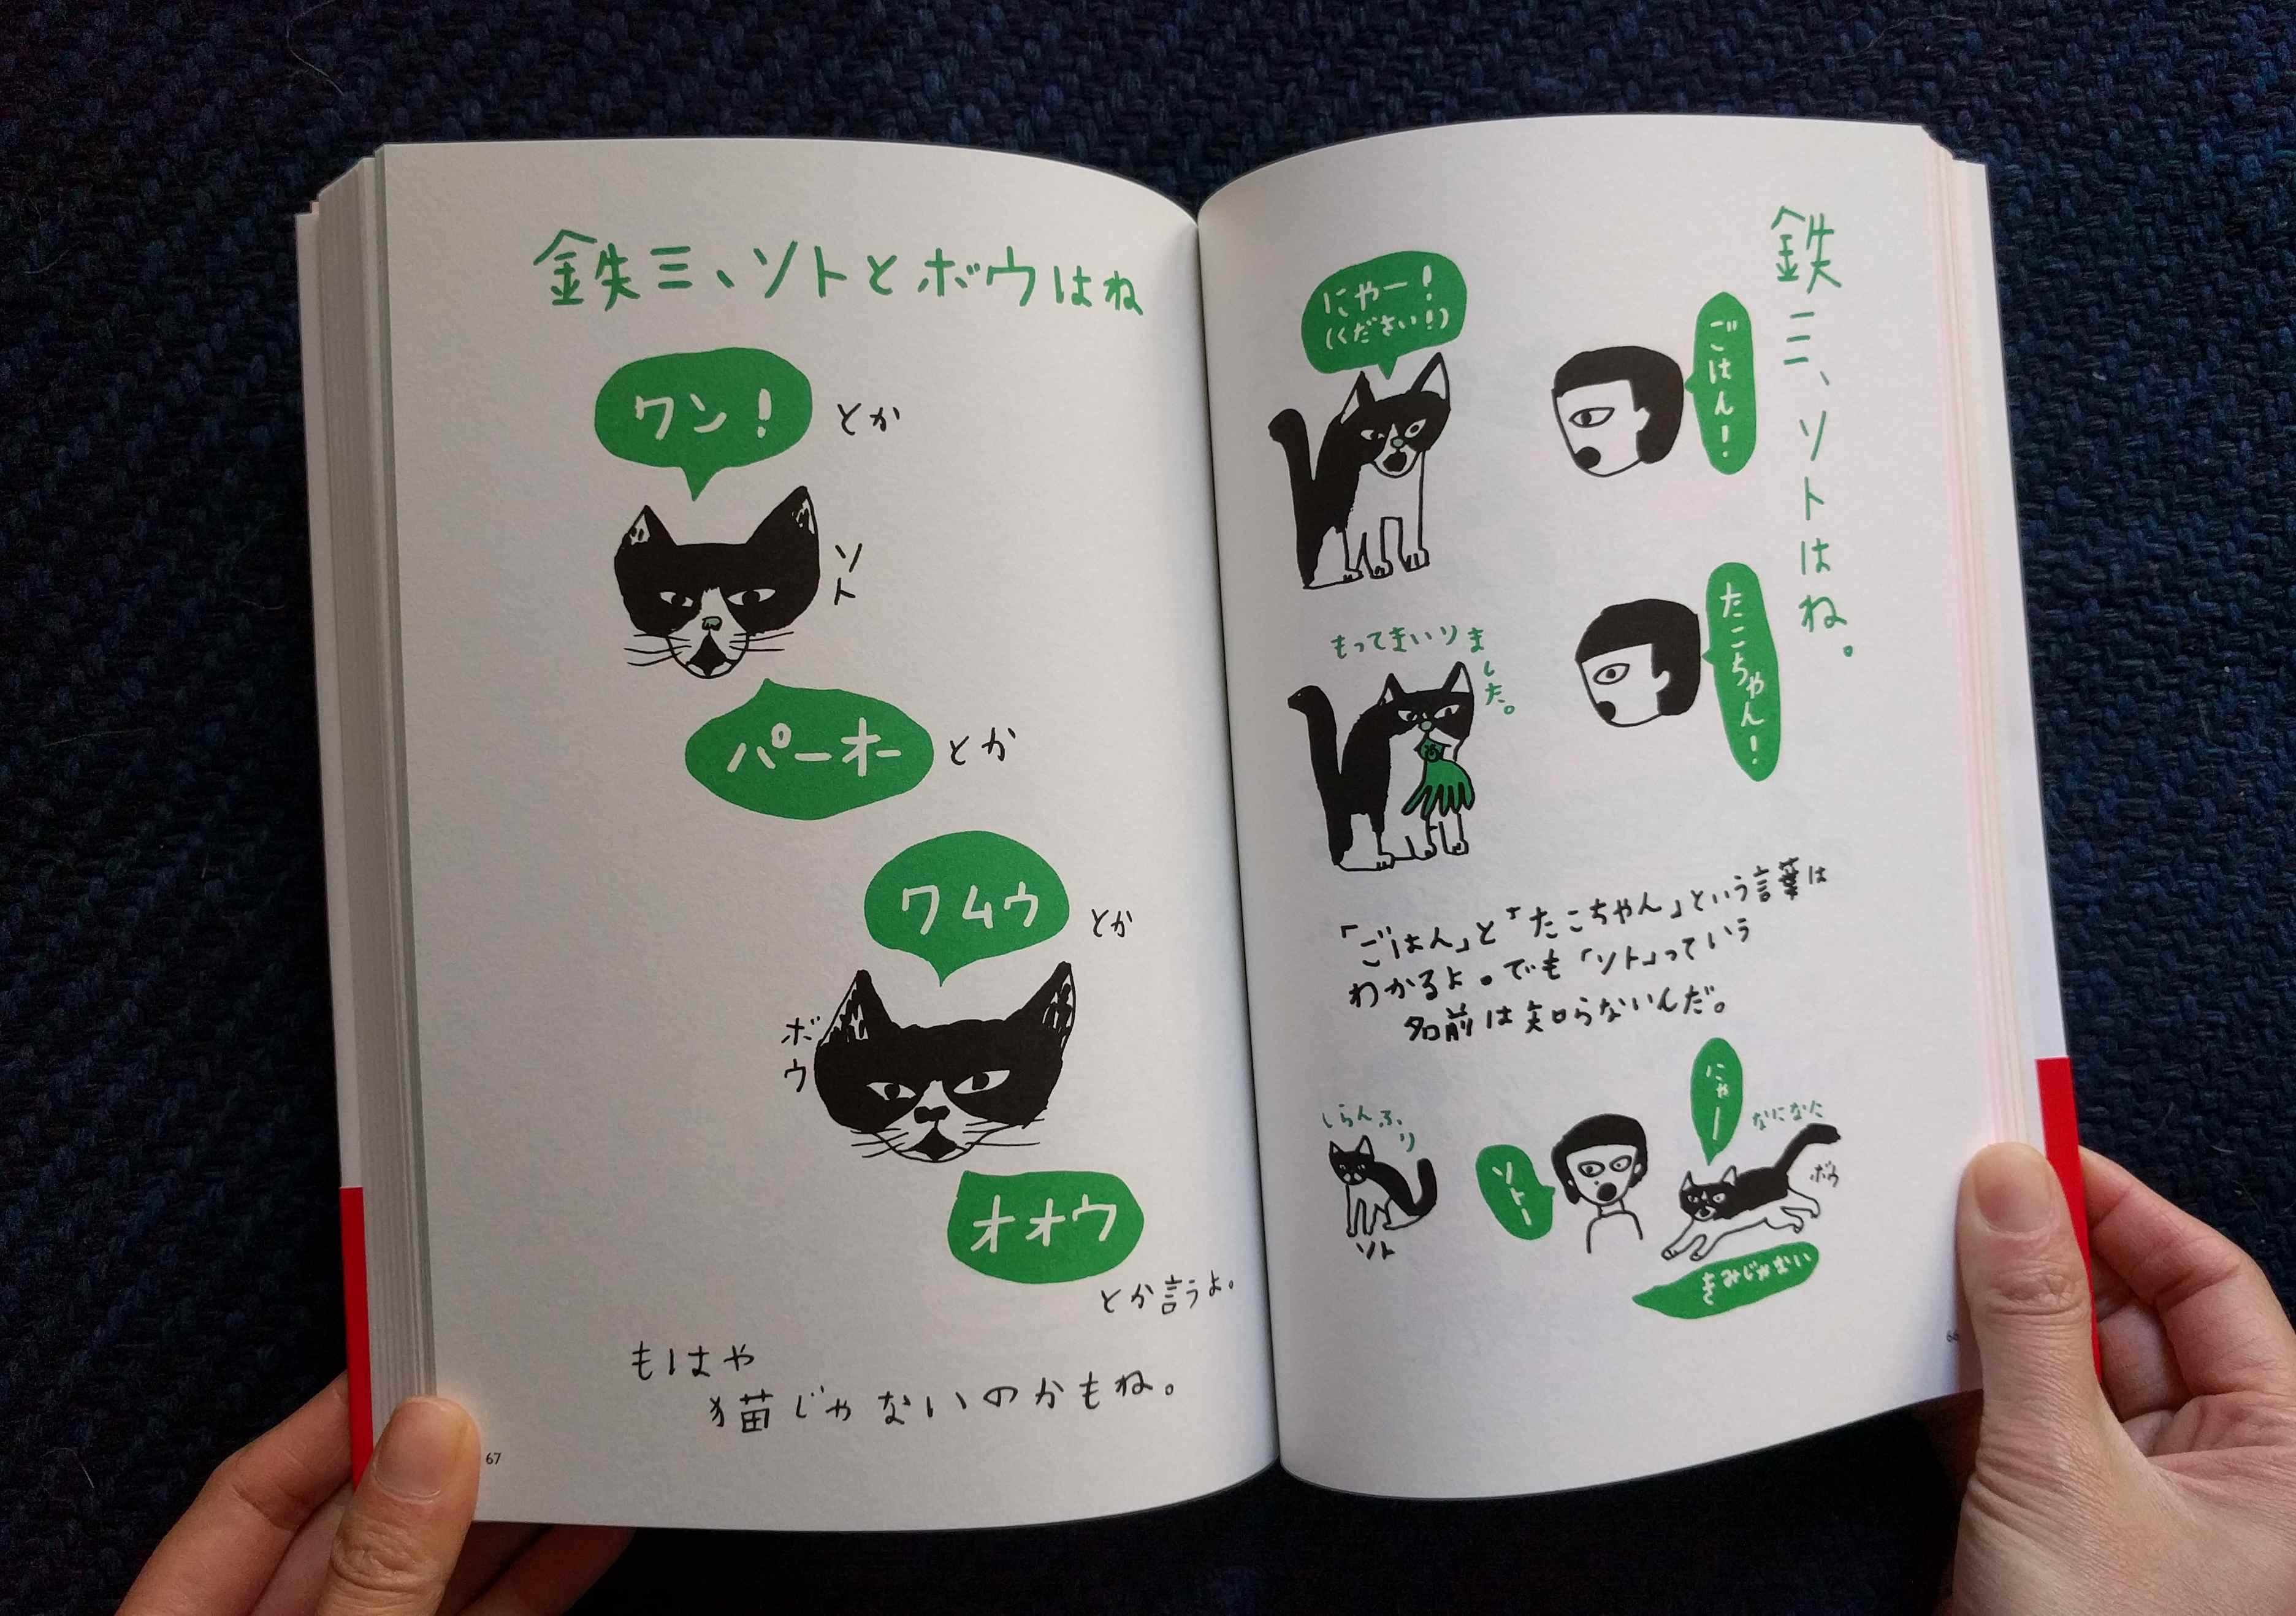 鉄三、ソトはね。
ごはん！
にゃー！
（ください！）
たこちゃん！
もってきいりました。
「ごはん」と「たこちゃん」という言葉は
わかるよ。でも「ソト」っていう
名前は知らないんだ。
にゃー
なになに
ボウ
きみじゃない
ソトー
しらんふり
ソト
66
鉄三、ソトとボウはね
ワン！
とか
ソト
パーオー
とか
ワムゥ
とか
ボウ
オオウ
とか言うよ。
もはや
猫じゃないのかもね。
67